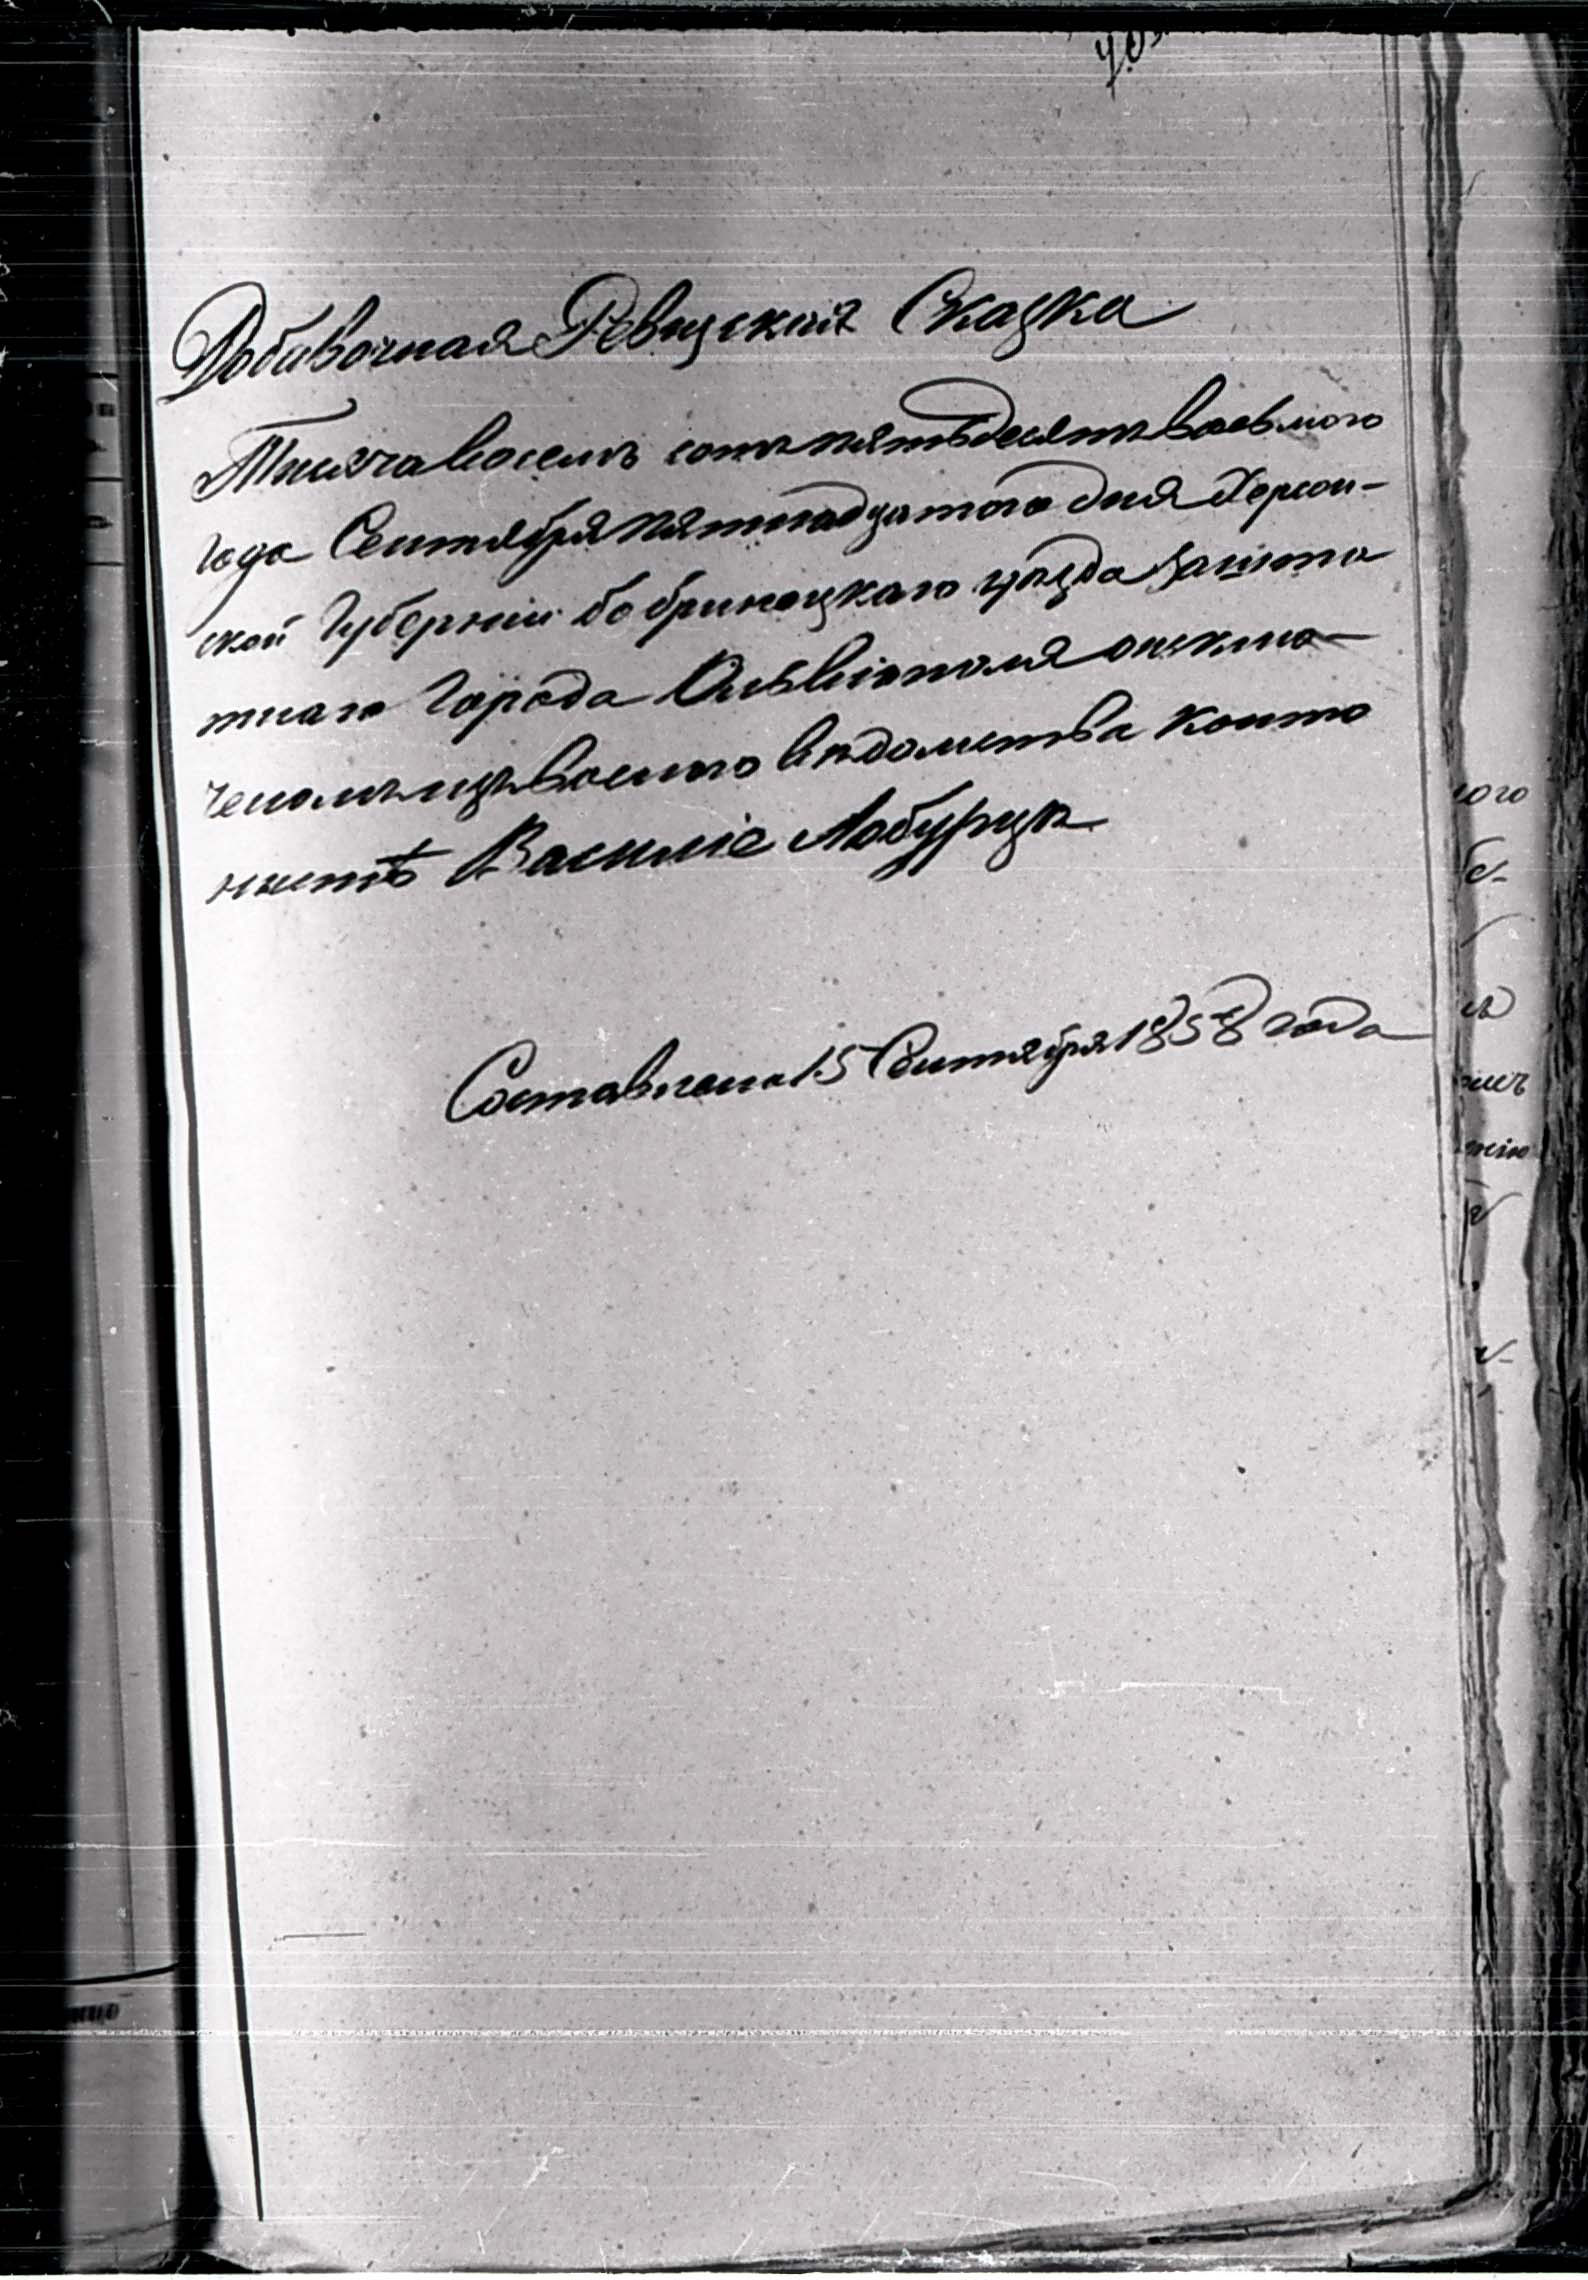 Добавочная Ревизская Сказка
Тысяча восемь сотъ пятьдесятъ восьмого
года Сентября пятнадцатого дня Херсон-
ской Губерніи Бобринецкаго уѣзда Зашта
тнаго Города Ольвіополя
военного вѣдомства канто
нистѣ Василіе
Составлена 15 Сентября 1858 года